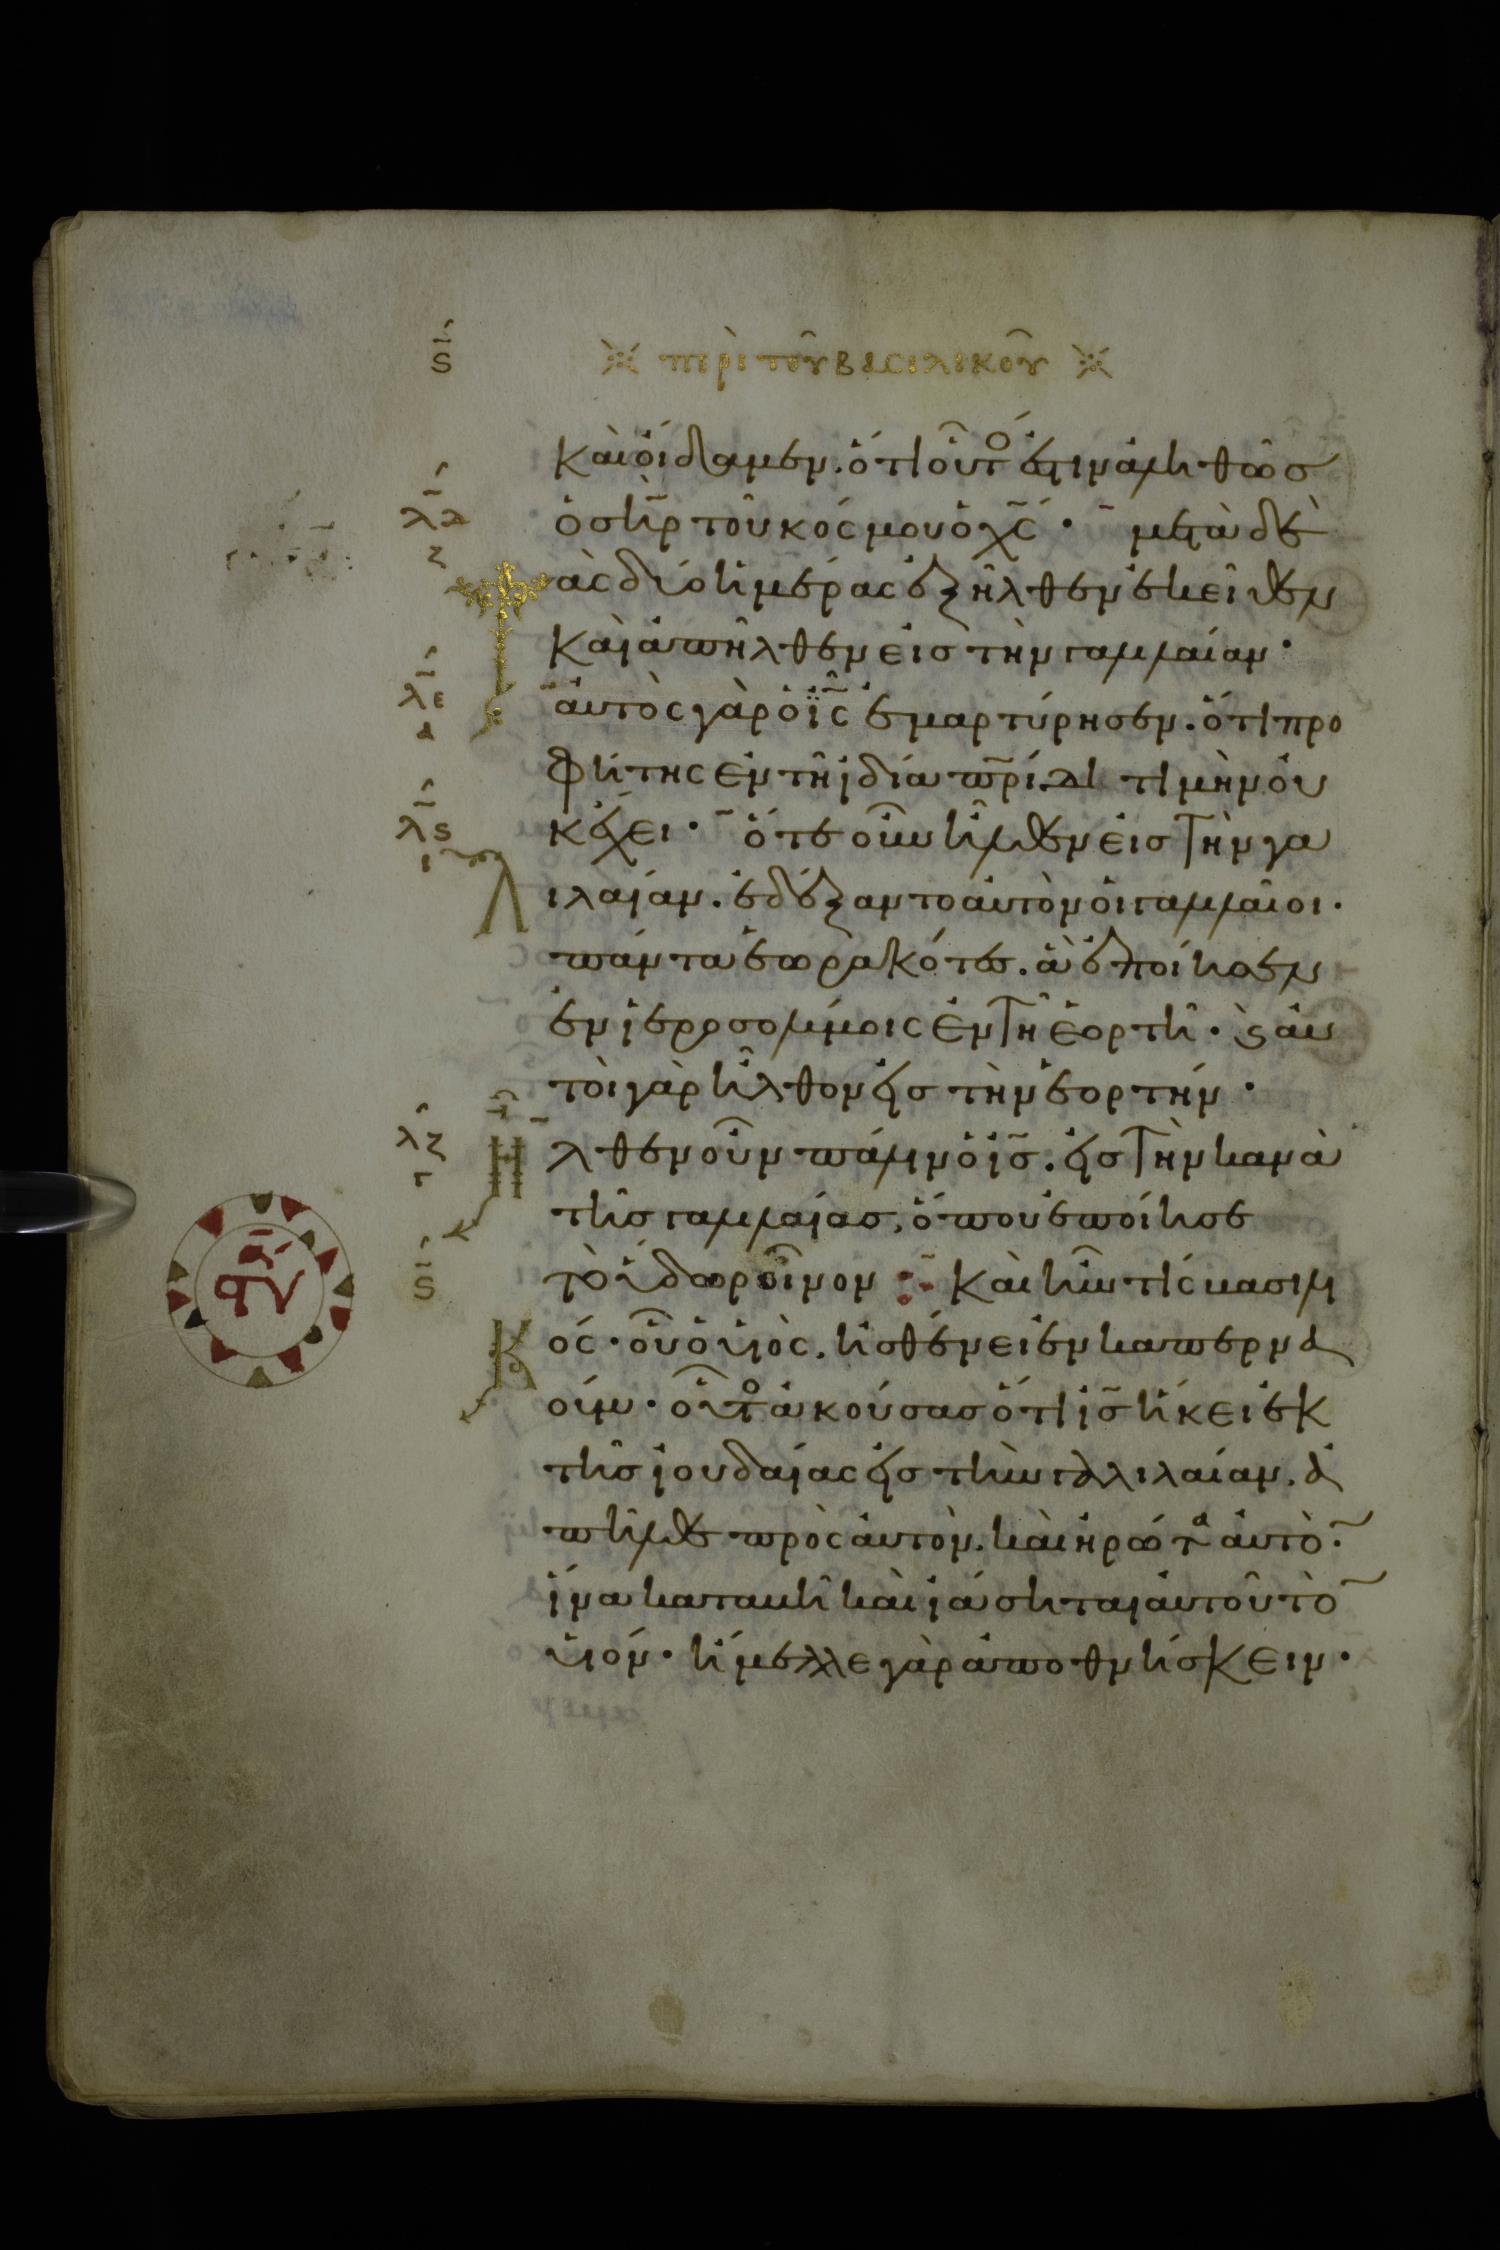 ϛ
περὶ τοῦ βασιλικοῦ
καὶ οἴδαμεν. ὅτι οὗτός ἐστιν ἀληθῶσ
λδ
ὁ σηρ τοῦ κόσμου ὁ χς · μετὰ δὲ
ζ
ὰς δύο ἡμέρας ἐξῆλθεν ἐκεῖθεν
καὶ ἀπῆλθεν εἰσ τὴν γαλιλαίαν ·
λε
αὐτὸς γὰρ ὁ ις ἐμαρτύρησεν. ὅτι προ
δ
φήτης ἐν τῆ ἰδία πρίδι τιμὴν οὐ
λϛ
κ ἔχει · ὅτε οὖν ἦλθεν εἰσ τὴν γα
ι
λιλαίαν. ἐδέξαντο αὐτὸν οἱ γαλιλαῖοι.
πάντα ἑωρακότεσ. ἃ ἐποίησεν
ἐν ἱεροσολύμοις ἐν τῆ ἑορτῆ · ϗ αὐ
τοὶ γὰρ ἦλθον εἰσ τὴν ἑορτήν ·
λζ
Ἦλθεν οὖν πάλιν ὁ ισ. εἰσ τὴν κανὰ
γ
τῆσ γαλιλαίασ, ὅπου ἐποίησε
ϛ
τὸ ὕδωρ οἶνον καὶ ἦν τίς βασιλι
Κός · οὗ ὁ υἱὸς. ἠσθένει ἐν καπερνα
ούμ · οὗτο ἀκούσασ ὅτι ισ ἥκει ἐκ
τῆσ ἰουδαίας εἰσ τὴν γαλιλαίαν. ἀ
πῆλθε πρὸς αὐτὸν. καὶ ἠρώτα αὐτὸ
ἵνα καταβῆ καὶ ἰάσηται αὐτοῦ τὸ
υἱόν · ἤμελλε γὰρ ἀποθνήσκειν ·